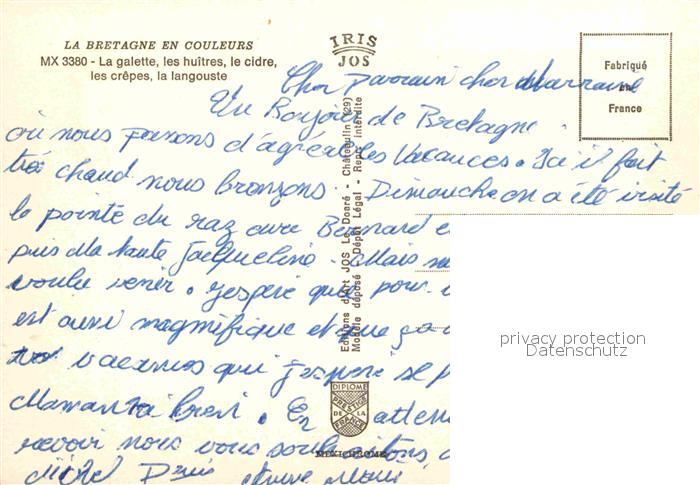 LA BRETAGNE EN COULEURS
MX 3380 - La galette, les huîtres, le cidre,
les crêpes, la langouste
IRIS
JOS
Fabriqué
en
France
Cher parrain cher Marraine
Un Bonjour de Bretagne
où nous passons d'agréables Vacances. Ici il fait
très chaud nous bronzons. Dimanche on a été visité
la pointe du raz avec Bernard e
puis Ma tante Jacqueline. Mais
voulu venir. J'espère que pour
est aussi magnifique et que ça
vacances qui j'espère se p
Maman t'a . En atten
revoir nous vous souhaitons
Michel Denis
Editions d'Art JOS Le Doaré - Châteaulin (29)
Modèle déposé - Dépôt Légal - Repr. interdite
DIPLOME
PRESTIGE
DE LA
FRANCE
MEXICHROME
privacy protection
Datenschutz